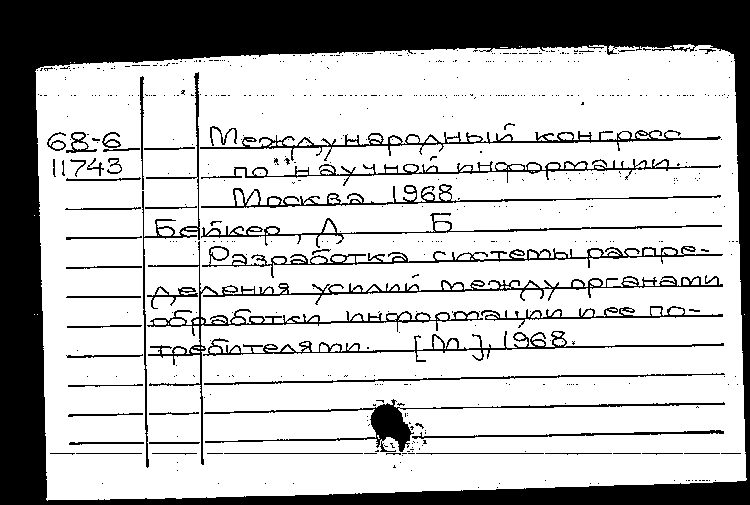 68-6 Международный конгресс
11743 по научной информации.
Москва. 1968.
Бейкер, Д Б
Разработка системы распре-
деления усилий между органами
обработки информации и ее по-
требителями. [М.], 1968.